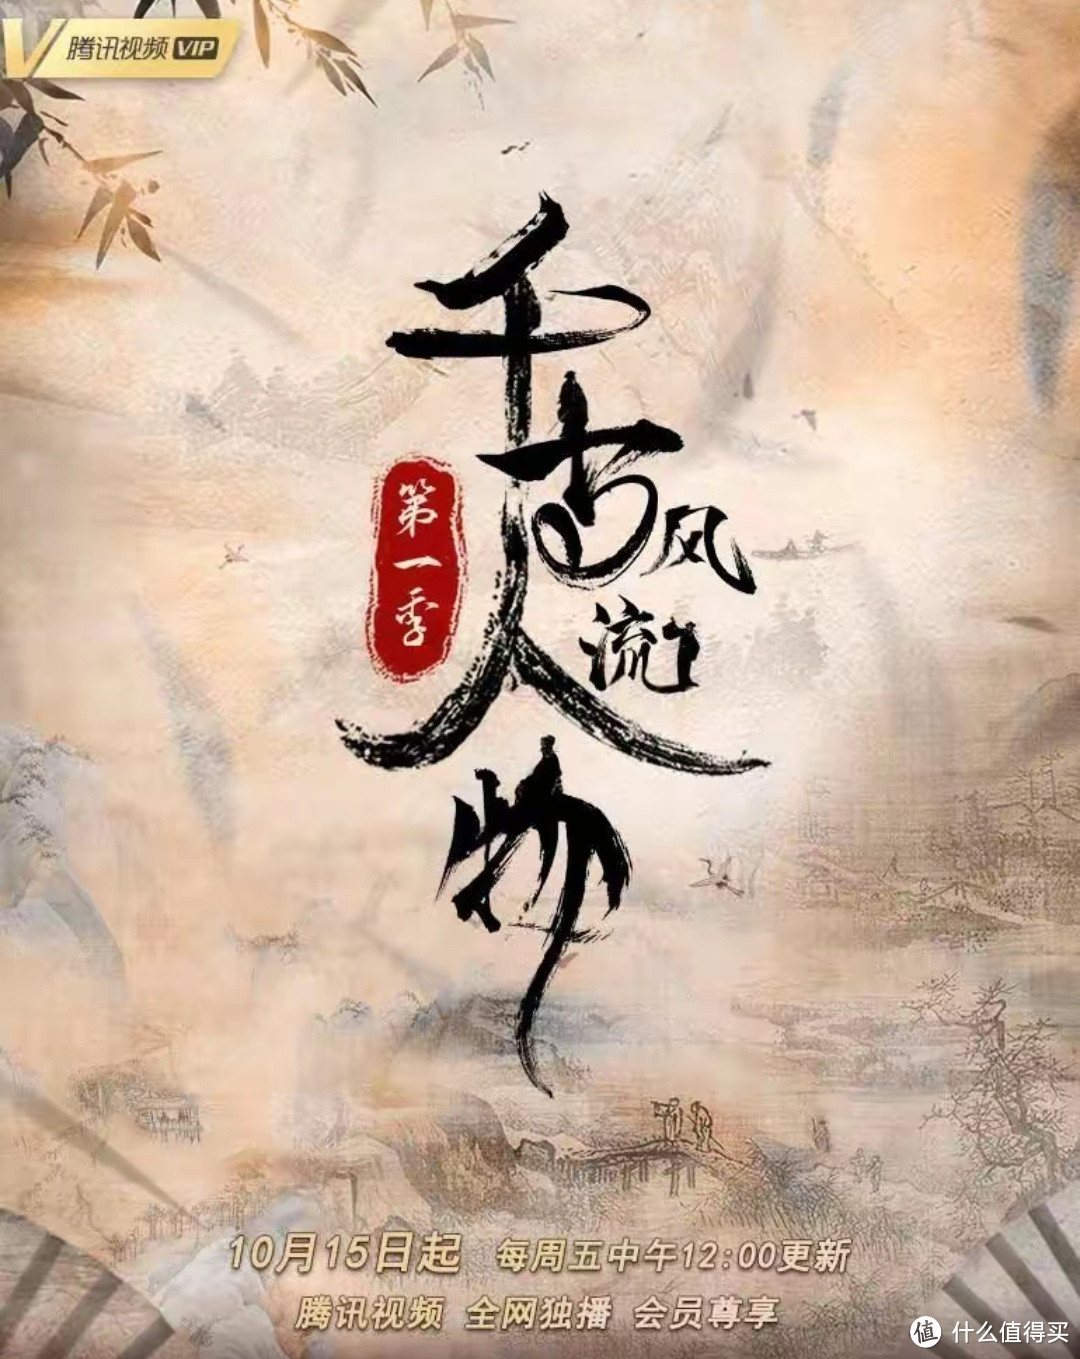 腾讯视频 VIP
千古风流人物
第一季
10月15日起 每周五中午12:00更新
腾讯视频 全网独播 会员尊享
值 什么值得买